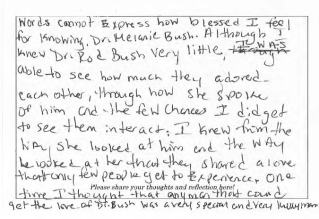 Words cannot Express how blessed I feel
for Knowing, Dr. Melanie Bush. Although I
knew Dr. Rod Bush Very little, I WAS
able to see how much they adored
each other, through how she spoke
of him and the few Chances I did get
to see them interact. I knew from the
WAy she looked at him and the WAy
he looked at her that they shared a love
that only few people get to Experience. One
time I thought that any man that could
Please share your thoughts and reflection here!
get the love of Dr. Bush was a very special and very lucky man